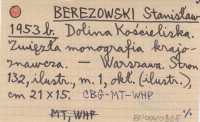 BEREZOWSKI Stanisław
1953 b. Dolina Kościeliska.
Zwięzła monografia krajo-
znawcza. — Warszawa. Stron
132, ilustr., m. 1, okł. (ilustr.),
cm 21 x 15. CBG-MT-WHP
MT, WHP